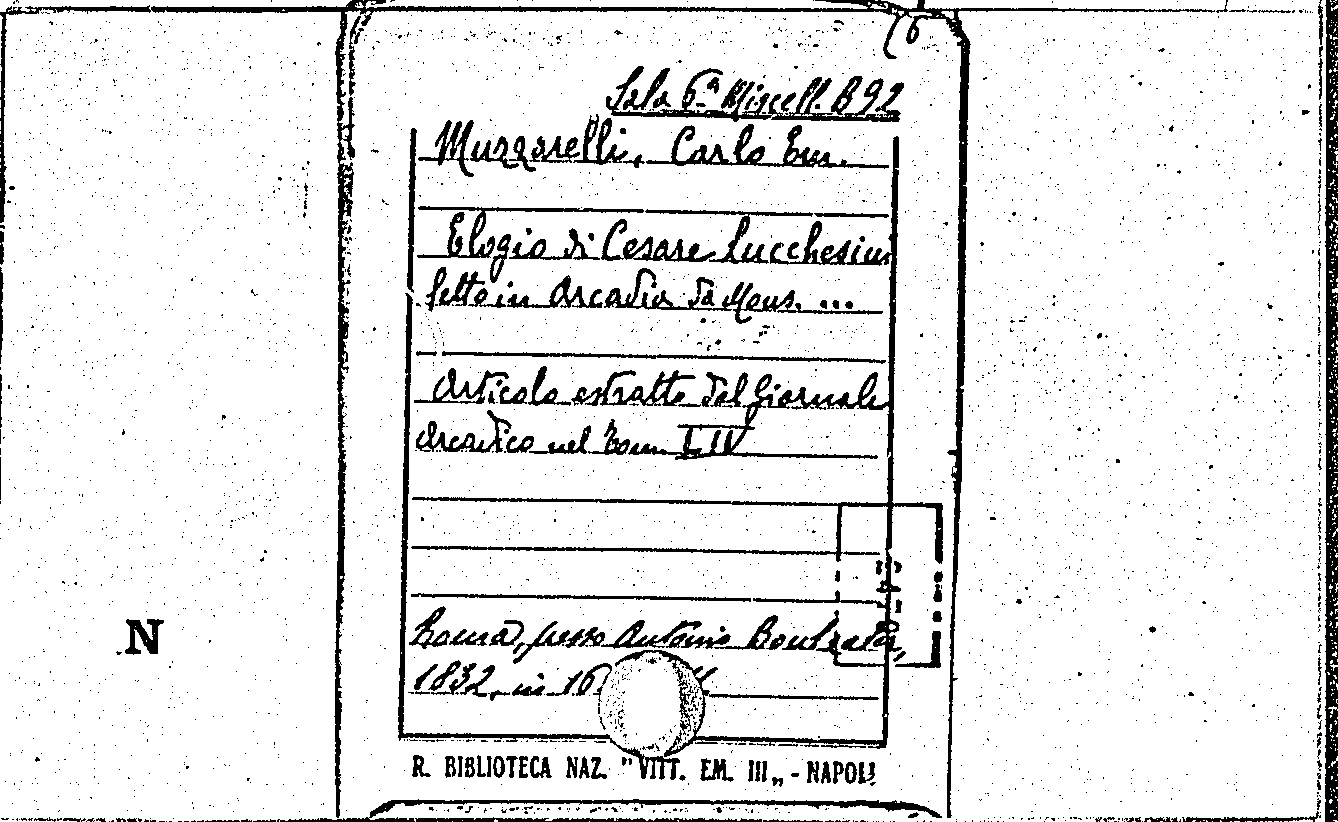 (6
Sala 6ª Miscell. B 92
Muzzarelli, Carlo Em.
Elogio di Cesare Lucchesini
letto in Arcadia da Mons. ...
Articolo estratto dal Giornale
Arcadico nel Tom. LIV
Roma, presso Antonio Boulzaler,
1832, in 16
N
R. BIBLIOTECA NAZ. "VITT. EM. III„ - NAPOLI